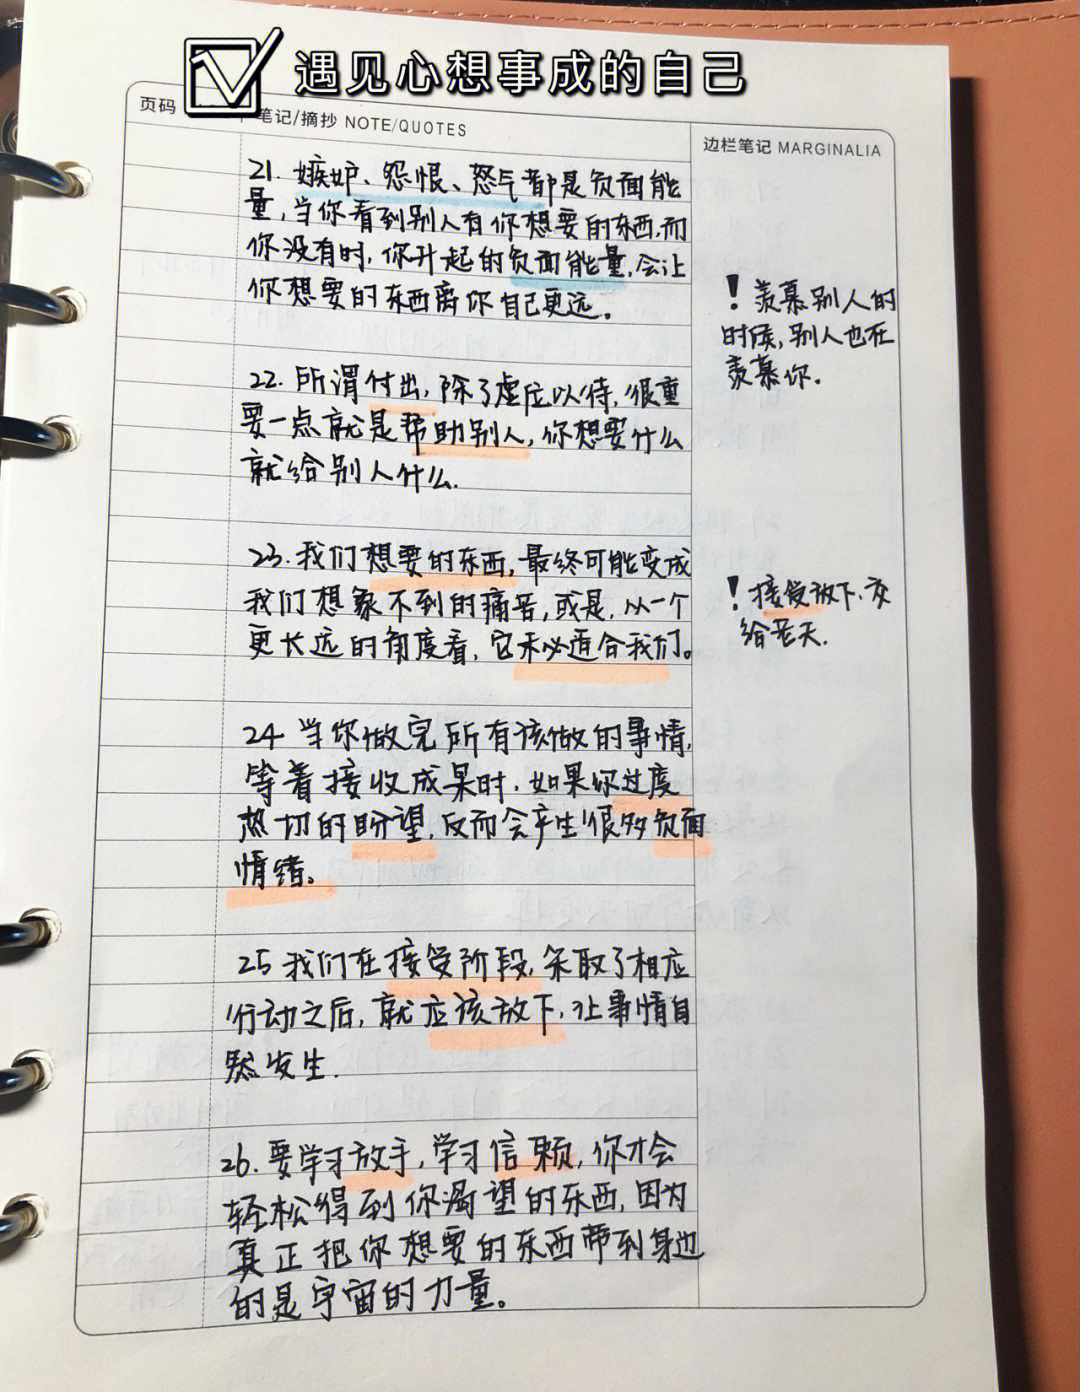 遇见心想事成的自己
页码
笔记/摘抄 NOTE/QUOTES
边栏笔记 MARGINALIA
21. 嫉妒、怨恨、怒气都是负面能
量,当你看到别人有你想要的东西,而
你没有时,你升起的负面能量,会让
你想要的东西离你自己更远。
! 羡慕别人的
时候,别人也在
羡慕你.
22. 所谓付出,除了虚位以待,很重
要一点就是帮助别人,你想要什么
就给别人什么.
23. 我们想要的东西,最终可能变成
我们想象不到的痛苦,或是,从一个
更长远的角度看,它未必适合我们。
! 接受放下,交
给老天.
24 当你做完所有该做的事情,
等着接收成果时,如果你过度
热切的盼望,反而会产生很多负面
情绪。
25 我们在接受阶段,采取了相应
行动之后,就应该放下,让事情自
然发生.
26. 要学习放手,学习信赖,你才会
轻松得到你渴望的东西,因为
真正把你想要的东西带到身边
的是宇宙的力量。